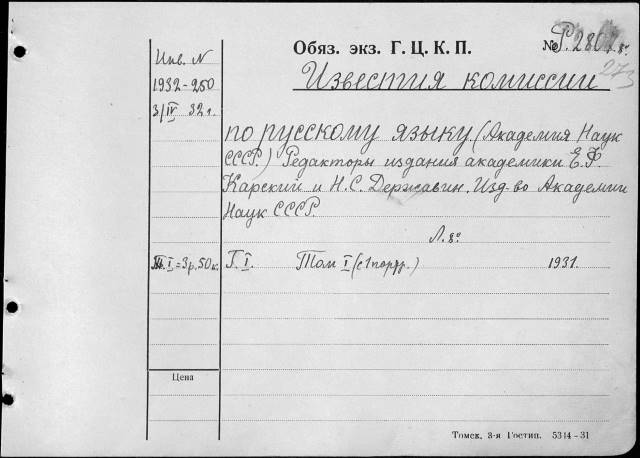 Инв. N
1932-250
3/IV 32 г.
Обяз. экз. Г. Ц. К. П.
№ Р. 2807 8°
273
Известия комиссии
по русскому языку (Академия Наук
СССР.) Редакторы издания академики Е. Ф
Карский и Н. С. Державин. Изд-во Академии
Наук СССР.
Л. 8°
Т. I = 3 р. 50 к.
Г. I. Том I (с 1 портр.) 1931.
Цена
Томск, 3-я Гостип. 5314-31